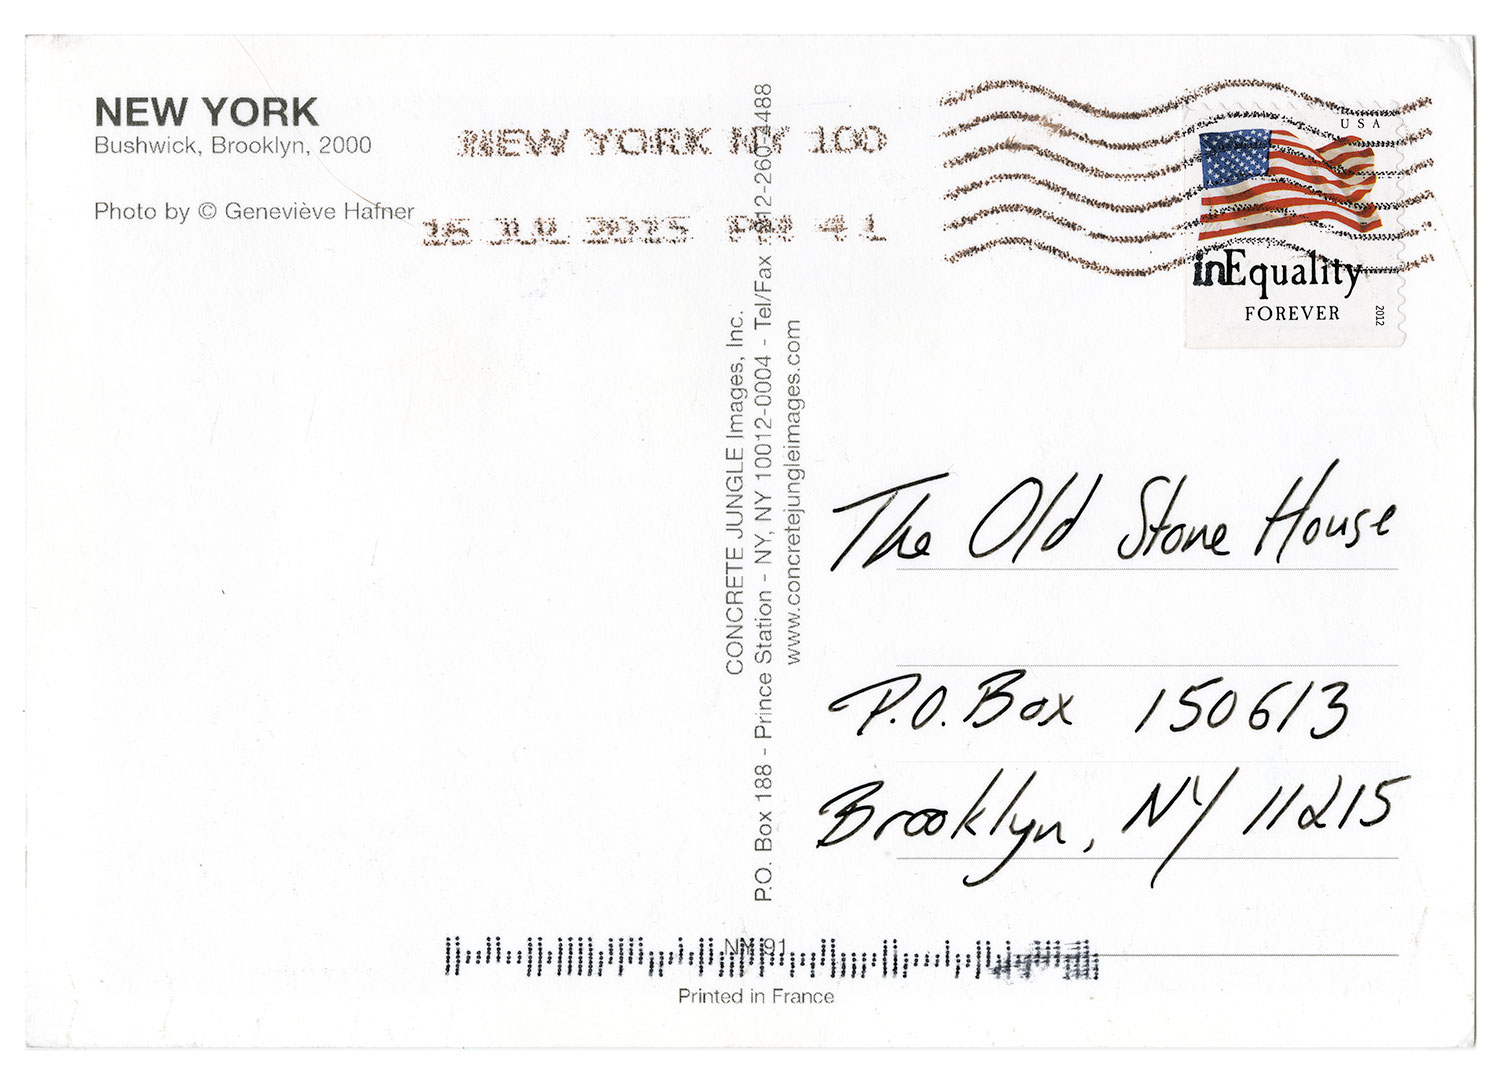 NEW YORK
Bushwick, Brooklyn, 2000
Photo by © Geneviève Hafner
NEW YORK NY 100
16 JUL 2015 PM 4 L
USA
inEquality
FOREVER
2012
CONCRETE JUNGLE Images, Inc.
P.O. Box 188 - Prince Station - NY, NY 10012-0004 - Tel/Fax 212-260-4488
www.concretejungleimages.com
The Old Stone House
P.O. Box 150613
Brooklyn, NY 11215
NY 91
Printed in France